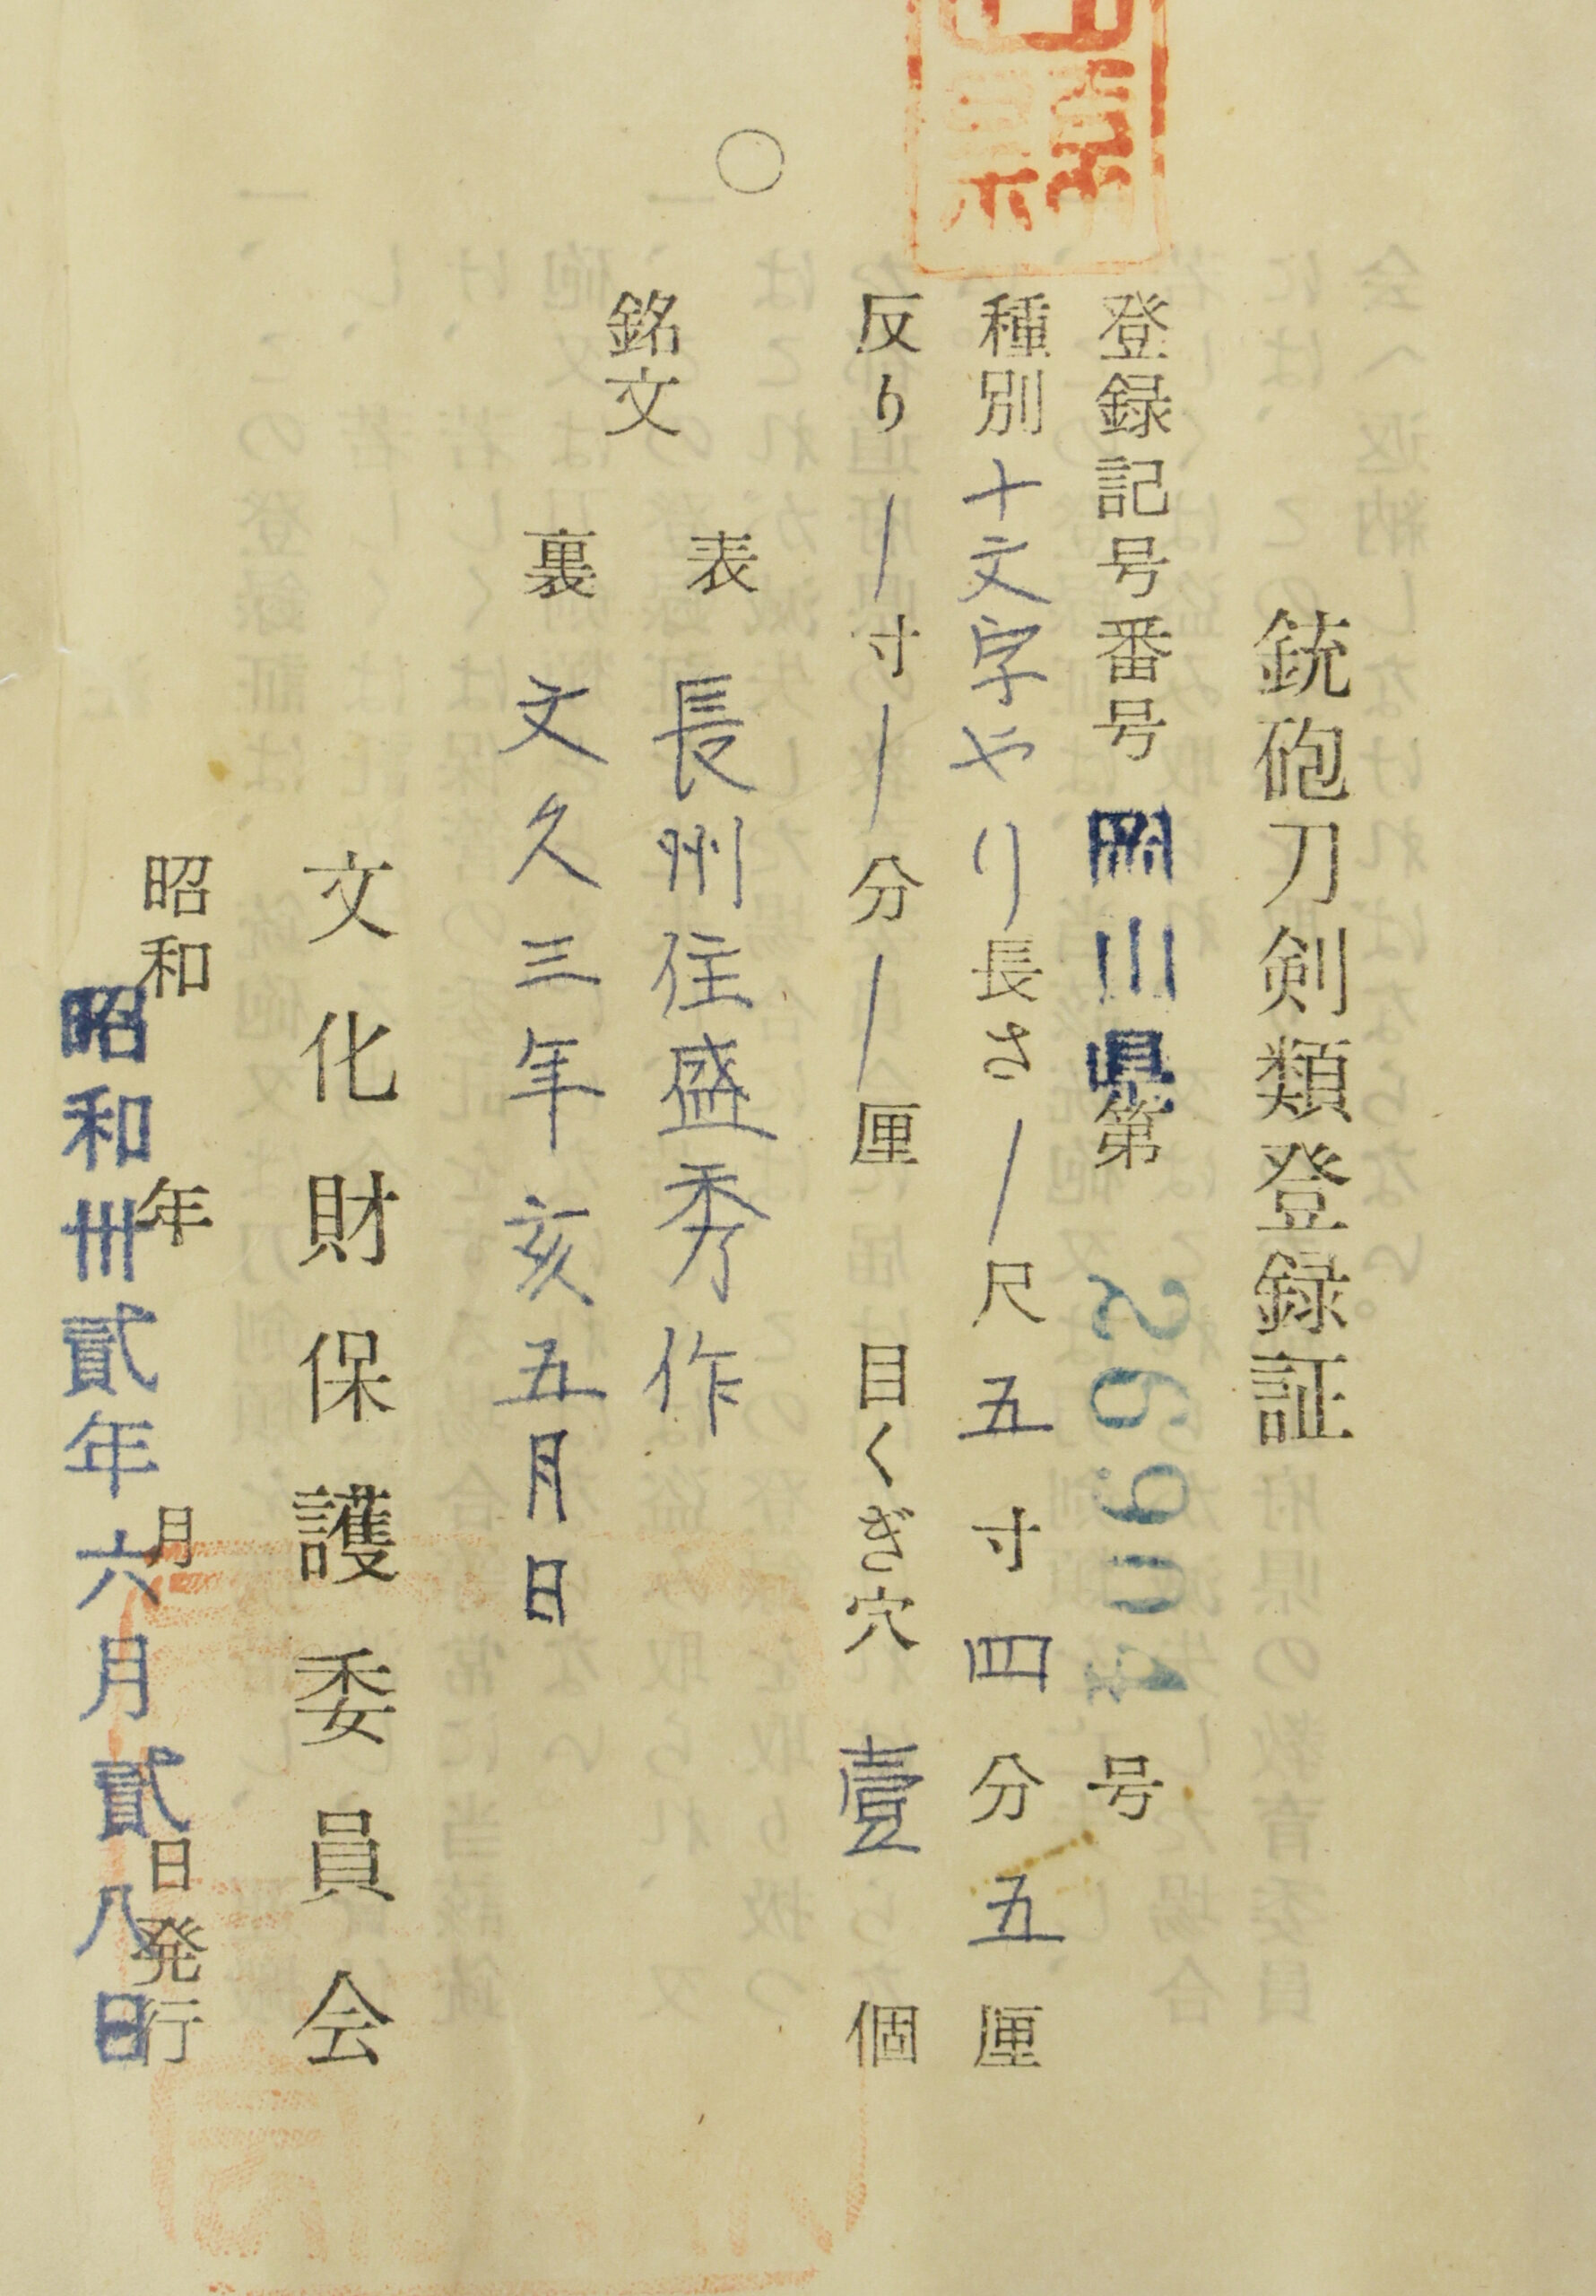 銃砲刀剣類登録証
登録記号番号 岡山県第 号
種別 十文字やり 長さ/尺五寸四分五厘
反り/寸/分/厘 目くぎ穴 壹個
銘文
表 長州住盛秀作
裏 文久三年亥五月日
文化財保護委員会
昭和 年 月 日発行
昭和卅貳年六月貳八日